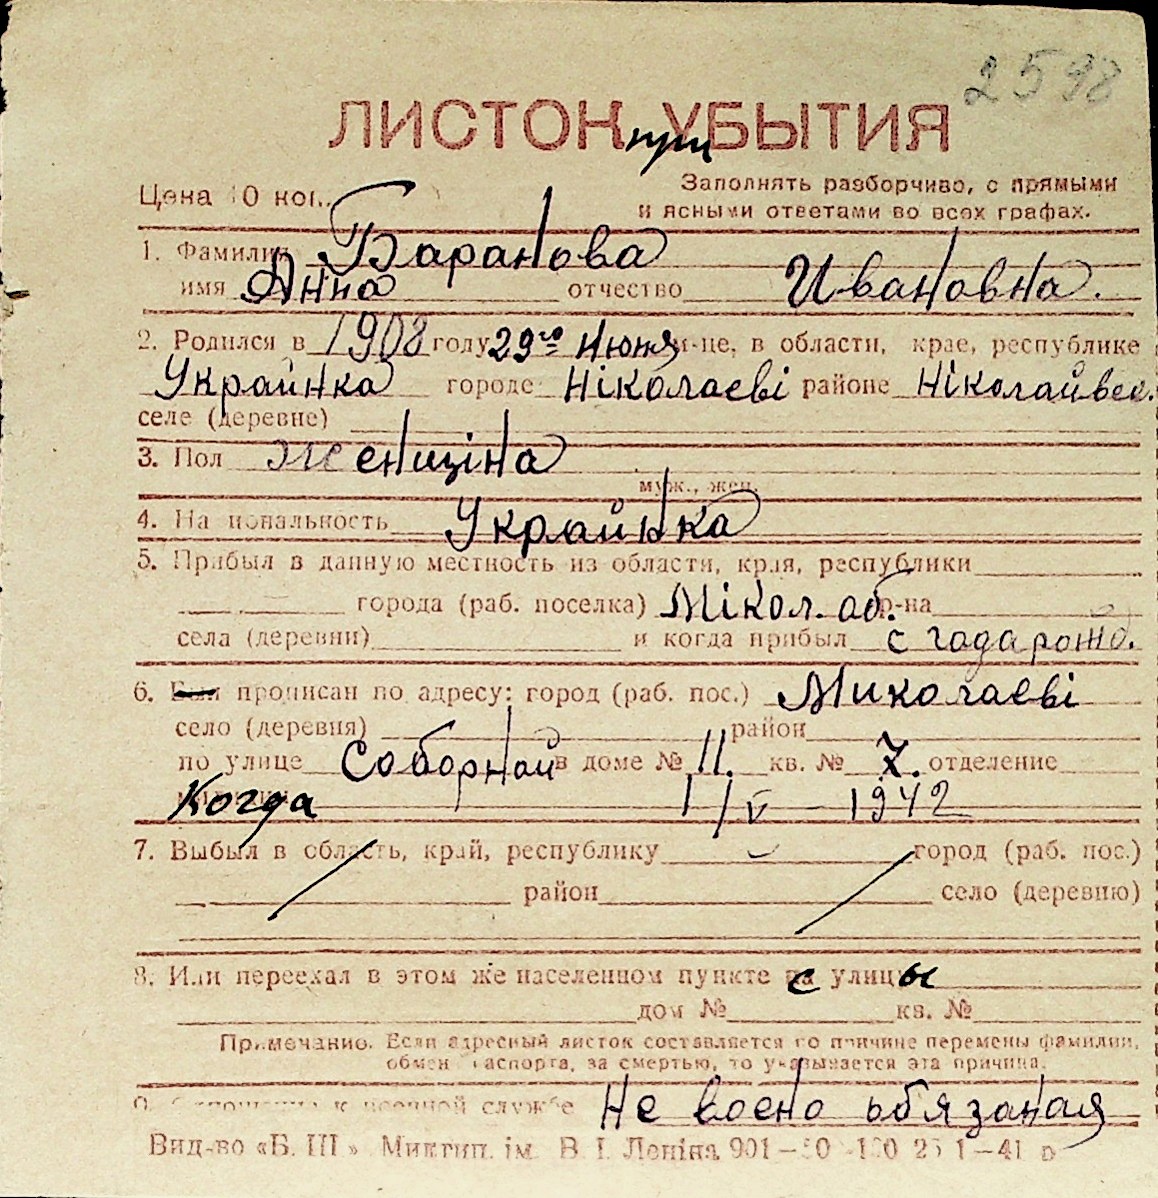 2598
ЛИСТОК при УБЫТИЯ
Цена 10 коп.
Заполнять разборчиво, с прямыми
и ясными ответами во всех графах.
1. Фамилия Баранова
имя Анна отчество Ивановна.
2. Родился в 1908 году 29го Июня м-це, в области, крае, республике
Украинка городе Ніколаеві районе Ніколайвск.
селе (деревне)
3. Пол Женщіна
муж., жен.
4. Национальность Украинка
5. Прибыл в данную местность из области, края, республики
города (раб. поселка) Мікол. об. р-на
села (деревни) и когда прибыл с года рожд.
6. Был прописан по адресу: город (раб. пос.) Миколаеві
село (деревня) район
по улице Соборной в доме № 11. кв. № 7. отделение
Когда 1/V – 1942
7. Выбыл в область, край, республику город (раб. пос.)
район село (деревню)
8. Или переехал в этом же населенном пункте с улицы
дом № кв. №
Примечание. Если адресный листок составляется по причине перемены фамилии,
обмен паспорта, за смертью, то указывается эта причина.
9. к военной службе Не воено обязаная
Вид-во «Б. Ш.» Микгип. ім. В. І. Леніна 901—50 25 1—41 р